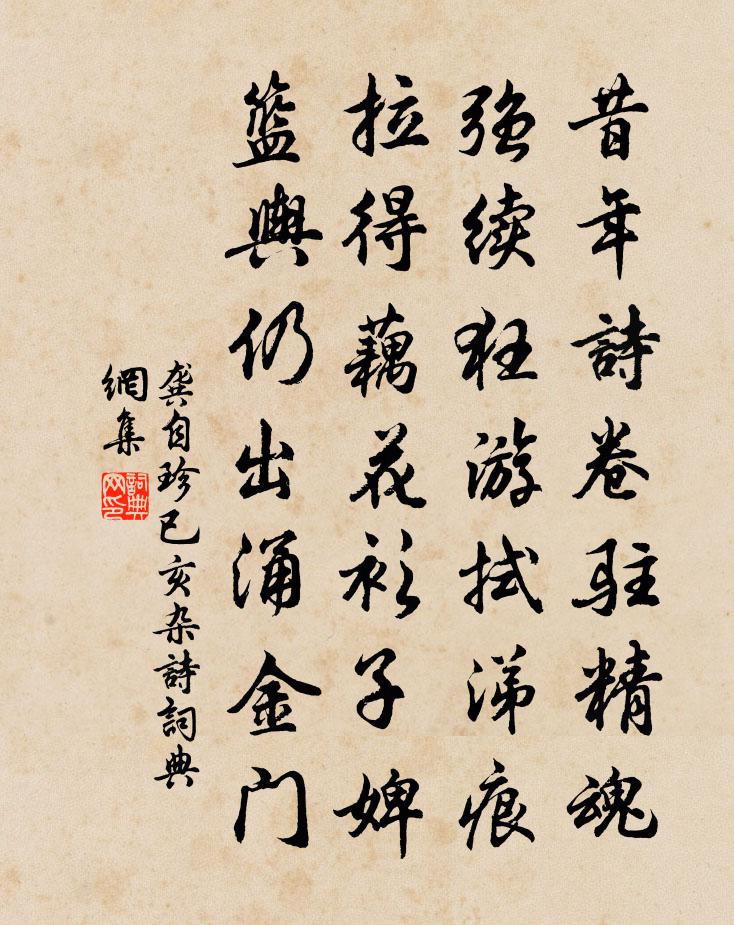 昔年詩卷驻精魂
强续狂游拭涕痕
拉得藕花衫子婢
籃輿仍出涌金门
龚自珍已亥杂詩詞典
網集
詞典网印